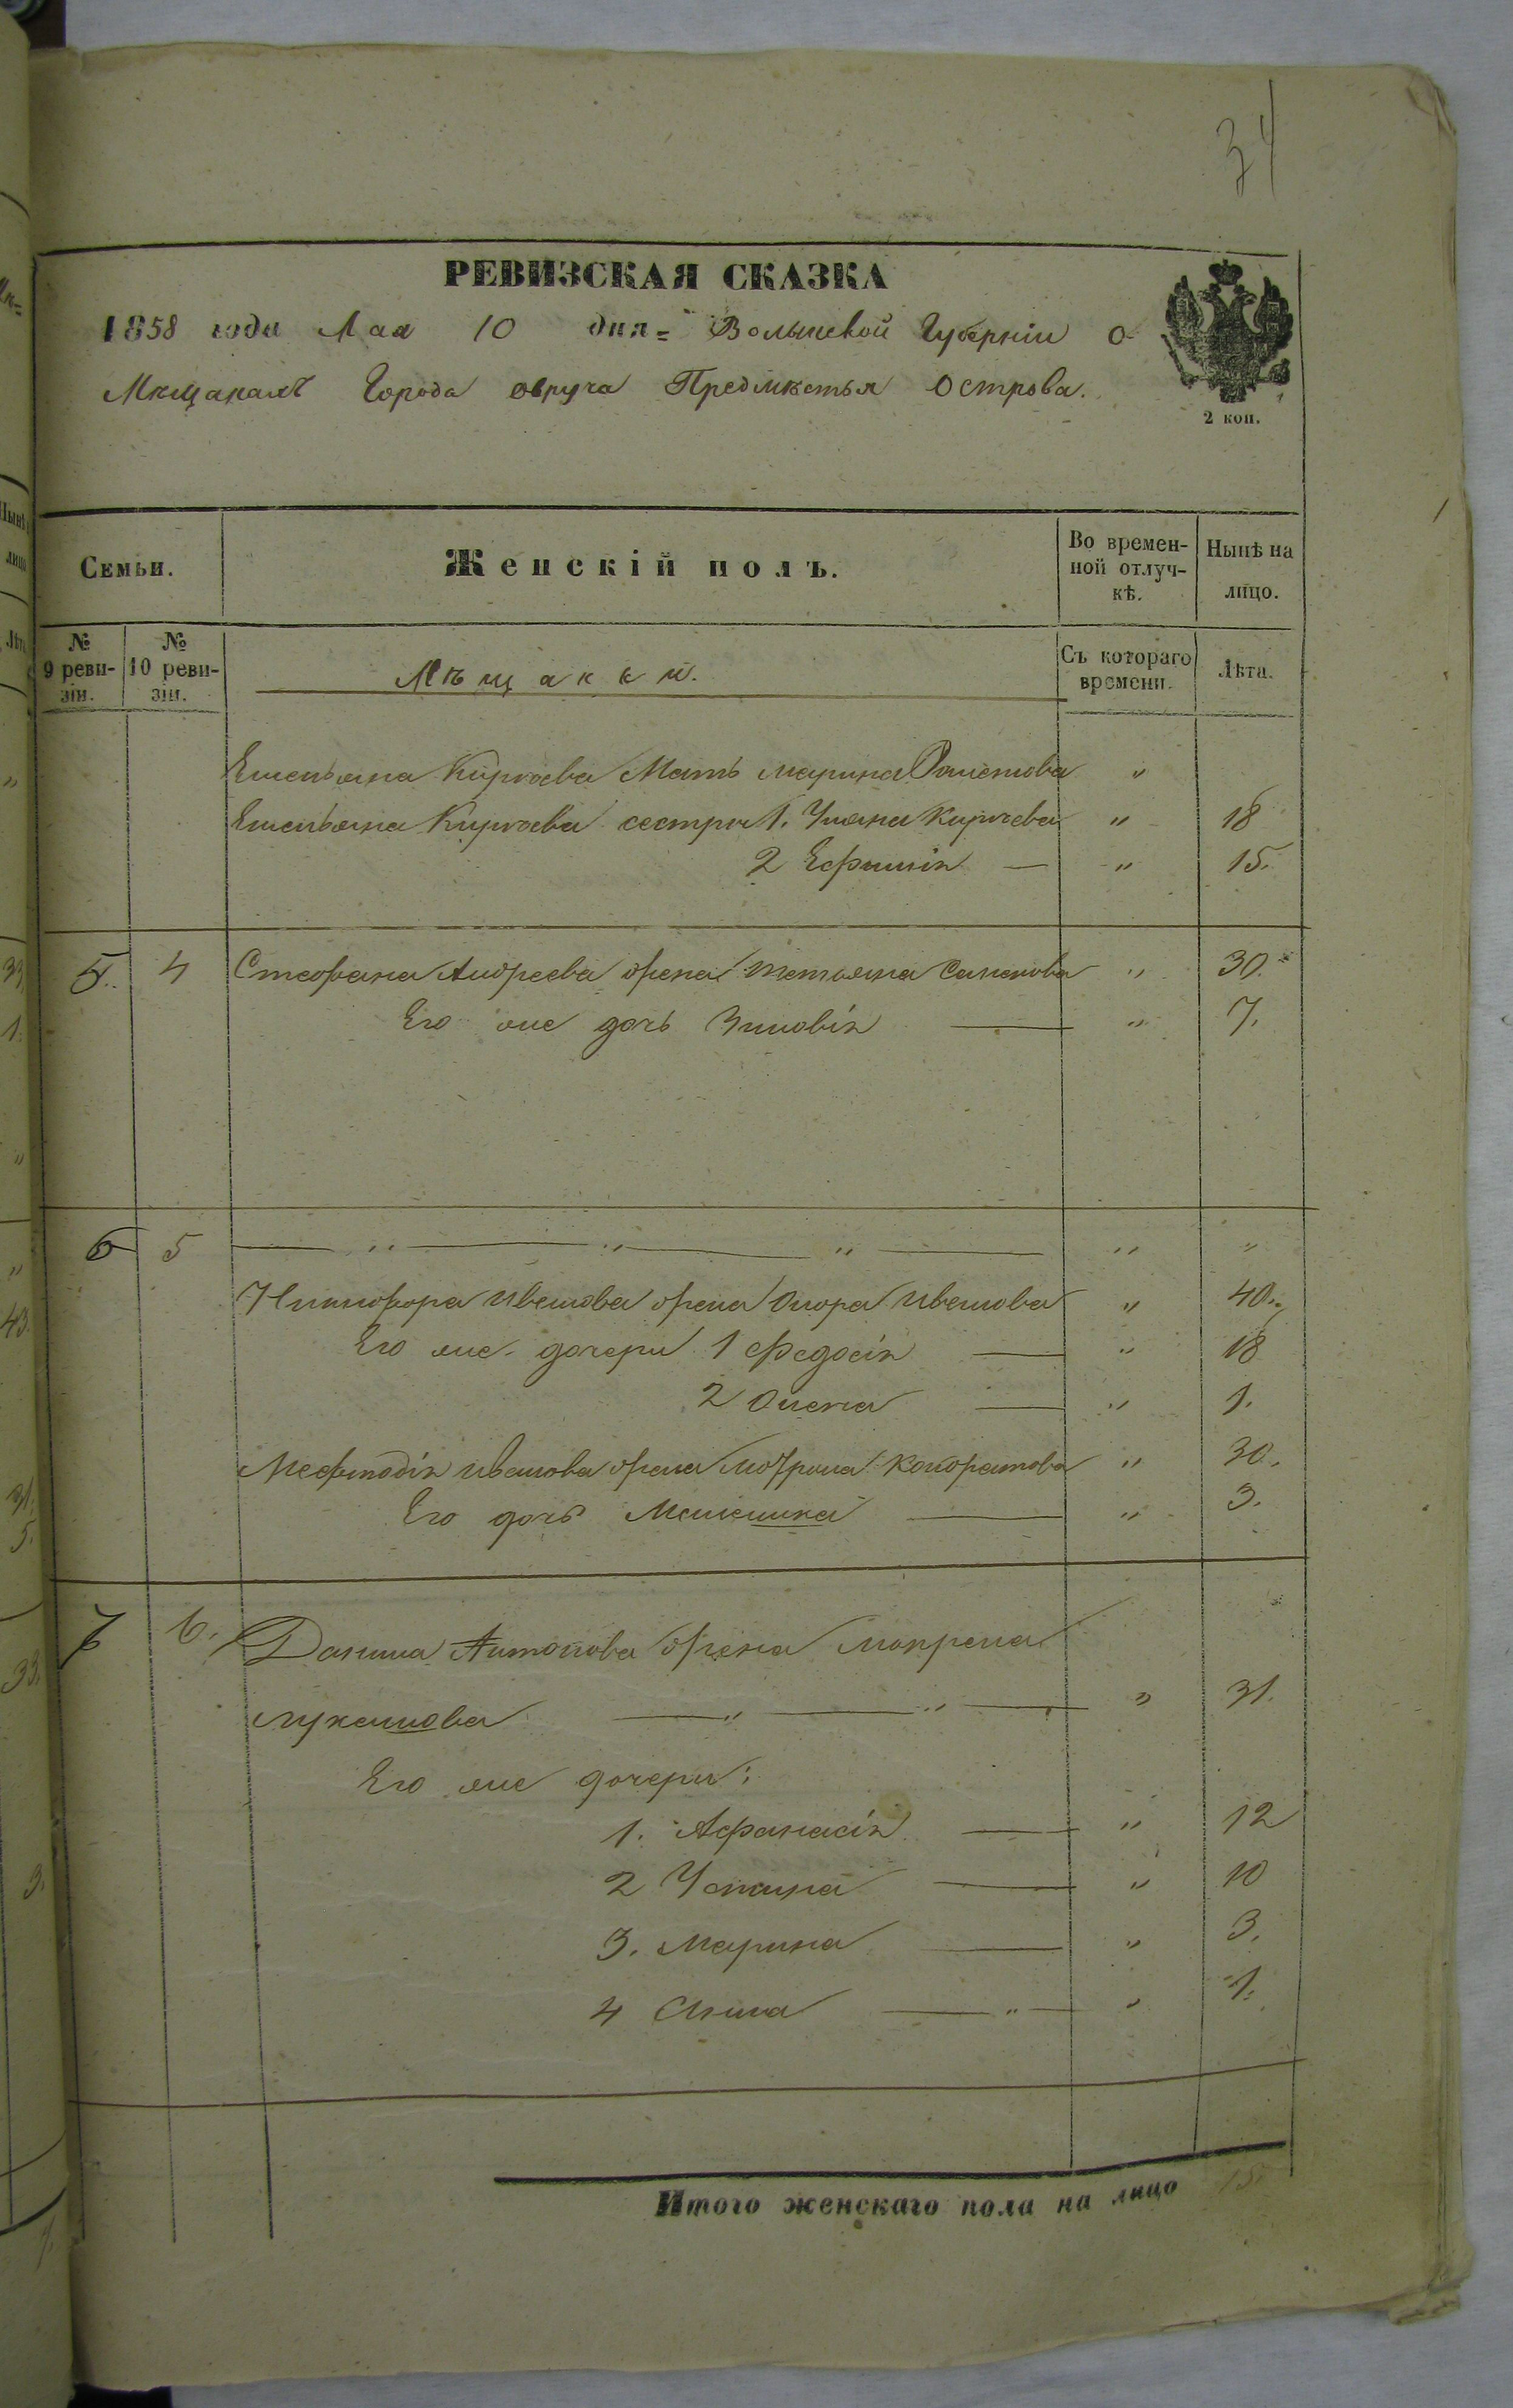 34
РЕВИЗСКАЯ СКАЗКА
1858 года Мая 10 дня Волынской Губерніи о
Мѣщанахъ Города овруча Предмѣстья Острова.
2 коп.
Семьи.
Женскій полъ.
Во времен-
ной отлуч-
кѣ.
Нынѣ на
лицо.
№
9 реви-
зіи.
№
10 реви-
зіи.
Мѣщанки.
Съ котораго
времени.
Лѣта.
Емельяна Мать марина "
Емельяна сестры 1. Уляна " 18
2 Ефимія — " 15.
5. 4 Стефана Андреева жена тетьяна Семенова " 30.
Его же дочь Зиновія — " 7.
6 5 — " — " — " — " "
Никифора Иванова жена Иванова " 40.
Его же дочери 1 Федосія — " 18
2 Олена — " 1.
Мефтодія иванова жена мотрона Кондратова " 30.
Его дочь Меланка — " 3.
7 6. Данила Антонова жена мокрена
лукашова — " — " — " 31.
Его же дочери:
1. Афанасія — " 12
2 Устина — " 10
3. Марина — " 3.
4 Анна — " — " 1.
Итого женскаго пола на лицо 15.